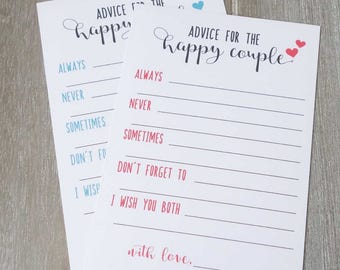 ADVICE FOR THE
happy couple
ALWAYS
NEVER
SOMETIMES
DON'T FORGET TO
I WISH YOU BOTH
with love,
ADVICE FOR THE
happy
ALWAYS
NEVER
SOMETIMES
DON'T
I WISH